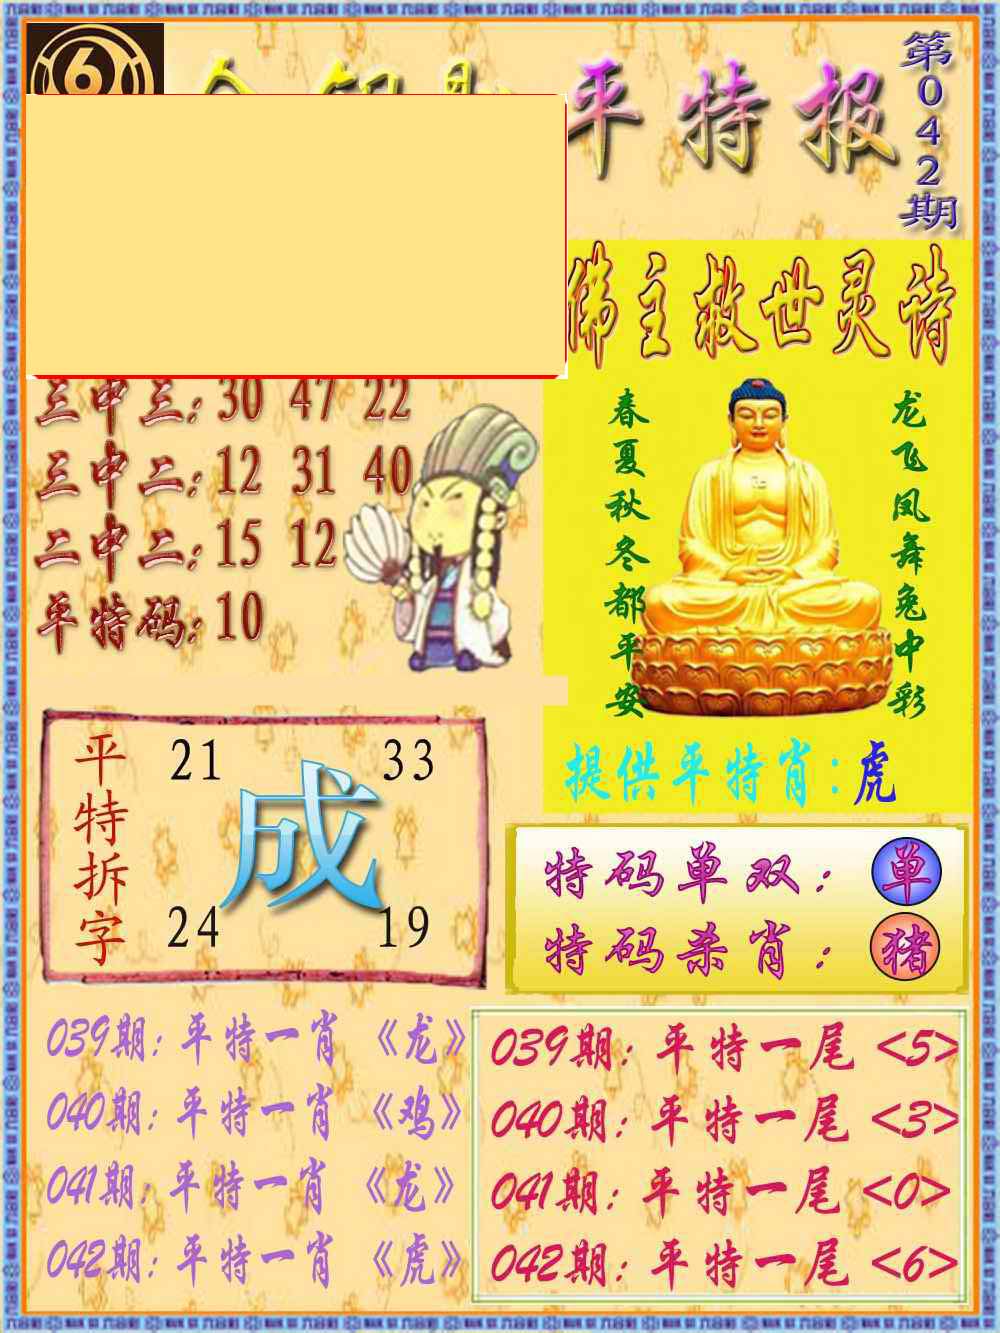 6
平特报
第042期
佛主救世灵诗
三中三: 30 47 22
三中二: 12 31 40
二中二: 15 12
平特码: 10
春夏秋冬都平安
龙飞凤舞兔中彩
提供平特肖:虎
平特拆字
21 33
成
24 19
特码单双: 单
特码杀肖: 猪
039期: 平特一肖 《龙》
040期: 平特一肖 《鸡》
041期: 平特一肖 《龙》
042期: 平特一肖 《虎》
039期: 平特一尾 <5>
040期: 平特一尾 <3>
041期: 平特一尾 <0>
042期: 平特一尾 <6>